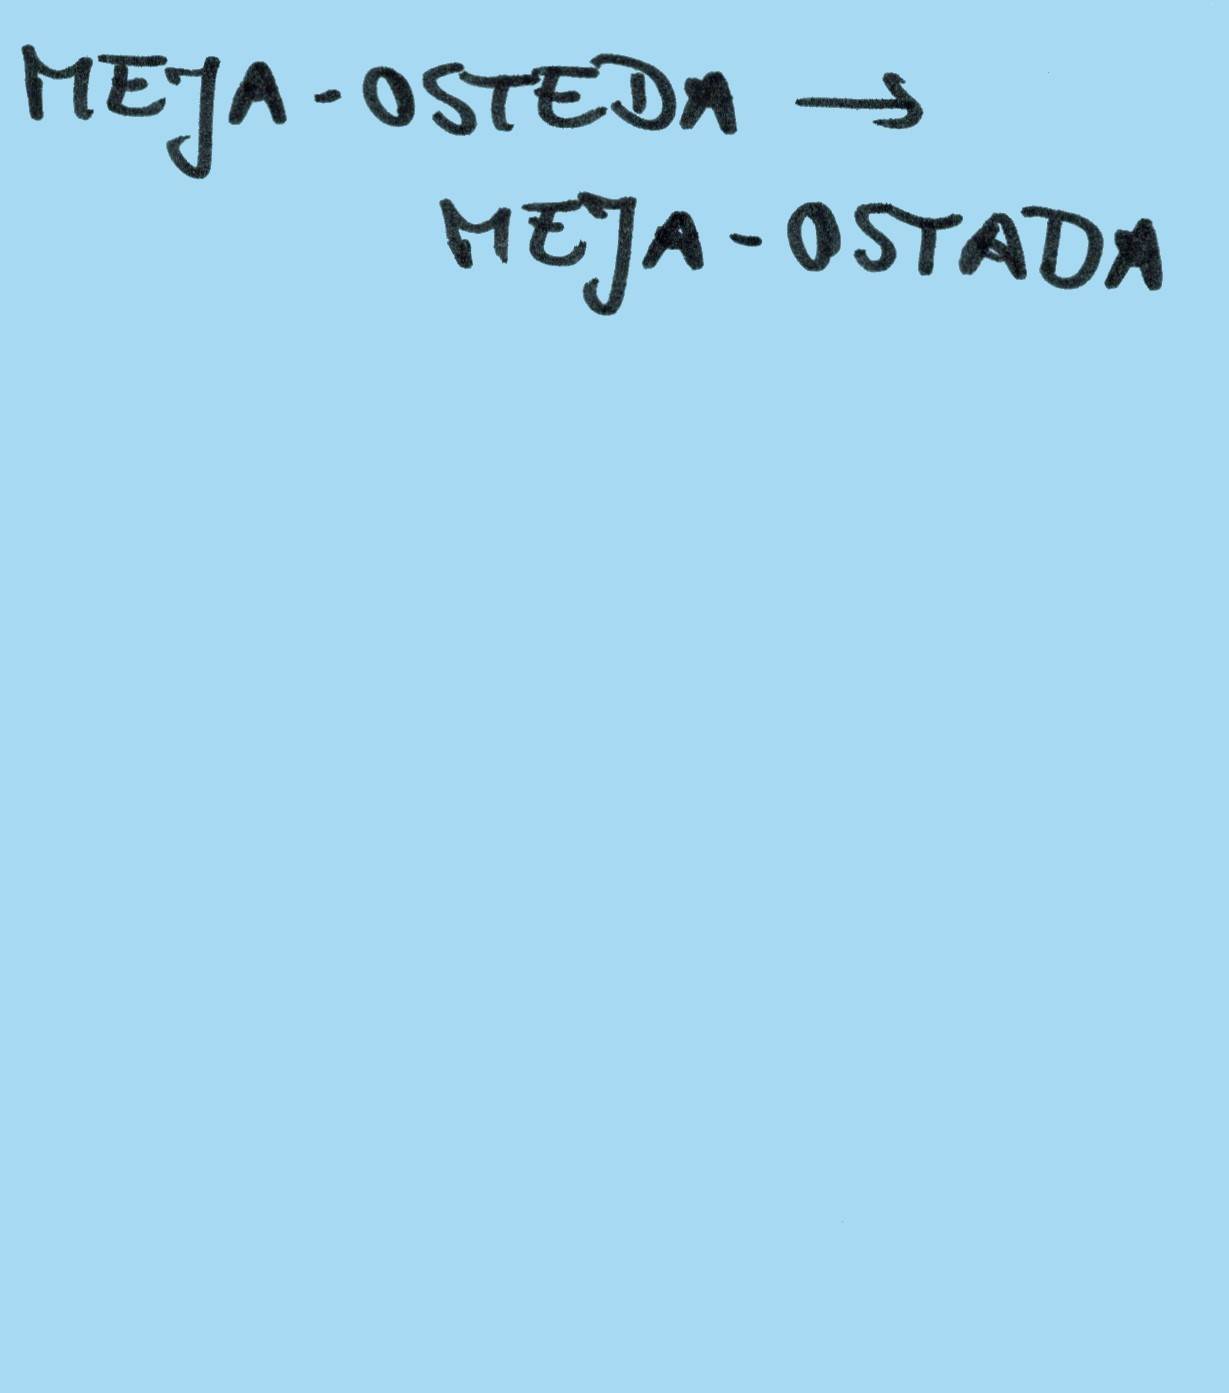 MEJA-OSTEDA →
MEJA-OSTADA